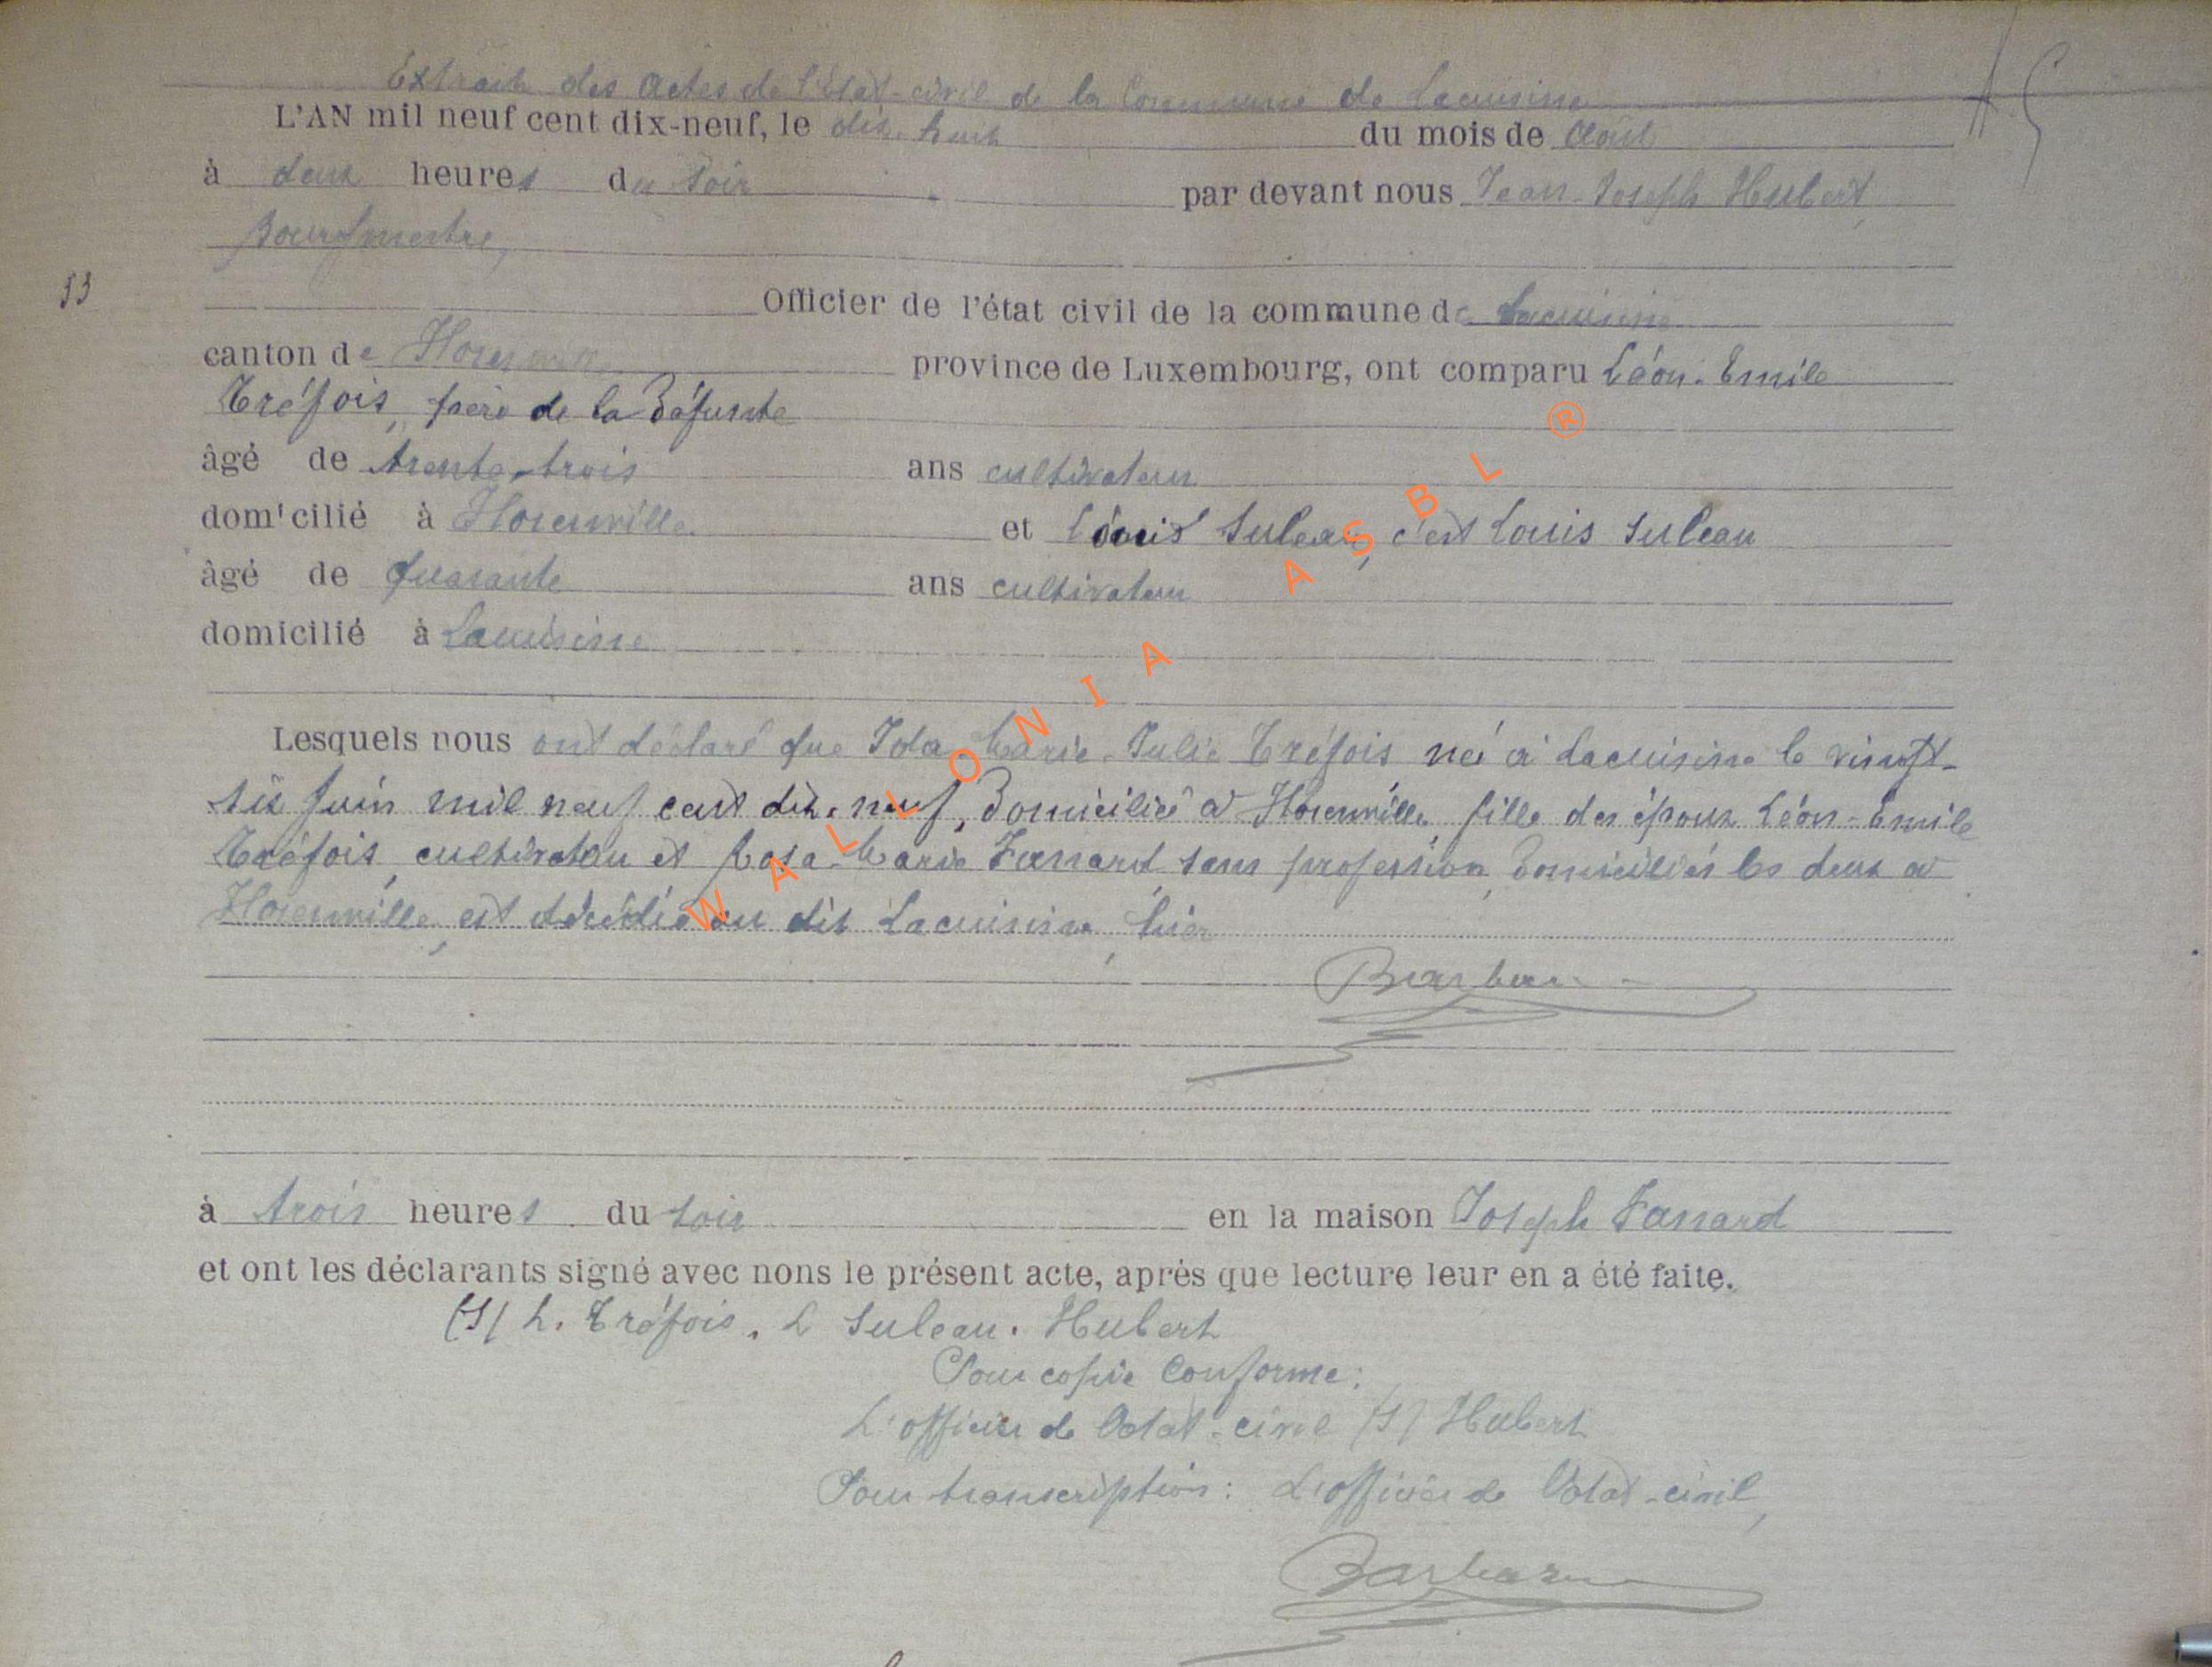 Extrait des Actes de l'Etat-civil de la Commune de Lacuisine
L'AN mil neuf cent dix-neuf, le dix-huit du mois de Août
à deux heures du soir par devant nous Jean-Joseph Hubert,
Bourgmestre,
53
Officier de l'état civil de la commune de Lacuisine
canton de Florenville province de Luxembourg, ont comparu Léon-Emile
Tréfois, père de la Défunte
âgé de trente-trois ans cultivateur
domicilié à Florenville et Louis Suleau, c'est Louis Suleau
âgé de quarante ans cultivateur
domicilié à Lacuisine
Lesquels nous ont déclaré que Ida-Marie-Julie Tréfois née à Lacuisine le vingt-
six Juin mil neuf cent dix-neuf, Domiciliée à Florenville, fille des époux Léon-Emile
Tréfois, cultivateur et Rosa-Marie Fanard sans profession, Domiciliés les deux à
Florenville, est décédée au dit Lacuisine, hier
à trois heures du soir en la maison Joseph Fanard
et ont les déclarants signé avec nons le présent acte, après que lecture leur en a été faite.
(s) L. Tréfois. L Suleau. Hubert
Pour copie Conforme:
L'officier de l'état-civil (s) Hubert
Pour transcription: L'officier de l'état-civil,
WALLONIA ASBL ®